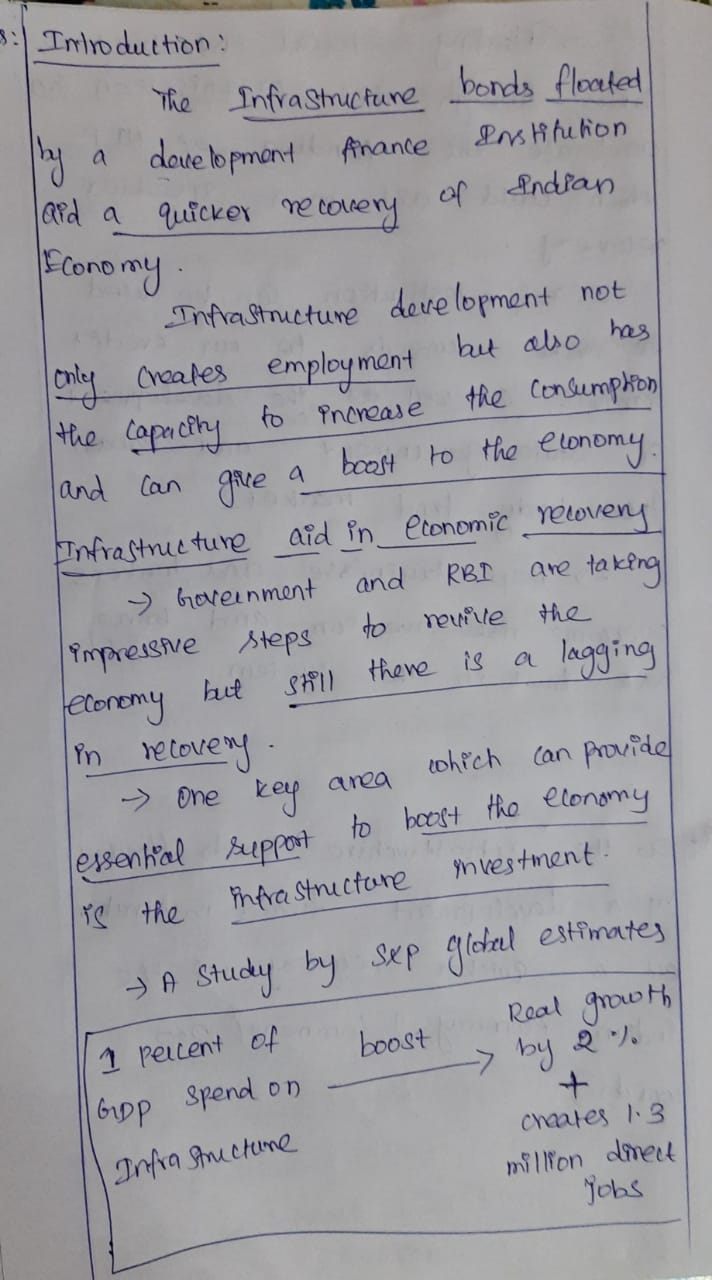 s:
Introduction:
The Infrastructure bonds floated
by a development finance Institution
aid a quicker recovery of Indian
Economy.
Infrastructure development not
only creates employment but also has
the capacity to increase the consumption
and can give a boost to the economy.
Infrastructure aid in economic recovery
→ Government and RBI are taking
impressive steps to revive the
economy but still there is a lagging
in recovery.
→ One key area which can provide
essential support to boost the economy
is the infrastructure investment.
→ A study by S&P global estimates
1 percent of
GDP spend on
Infrastructure
boost
→
Real growth
by 2 %
+
creates 1.3
million direct
jobs